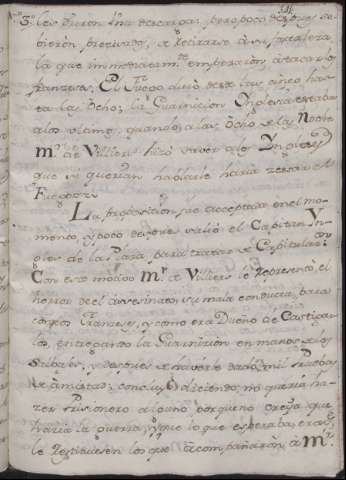 les dieron una descarga; pero poco despues se
vieron precisados, a retirarse à su fortaleza
la que inmediatam.te empezaron, à atacar los
franzeses, El Fuego duro desde las cinco has-
ta las Ocho; la Guarnicion Inglesa estaba
a los ultimos, quando à las Ocho de la Noche
M.r de Villiers hizo saver a los Ingleses
que si querian hablarle haria zesar el
Fuego.
La proposicion fue acceptada en el mo-
mento, y poco despues salio el Capitan Yn-
gles de la Plaza para tratar de Capitulacion.
Con este motivo M.r de Villiers le Represento el
horror de el assesinato, su mala conducta, para
con los Franzeses, y como era Dueño de Castigar
los, entregando la Guarnicion en manos de los
Salvages, y despues de haverle dado mil pruebas
de amistad; concluyò diciendo, no queria ha-
zer Prisionero alguno porque no creya que
havia la guerra, y que lo que esperaba, era que
le Restituiesen los que acompañaron, à M.r